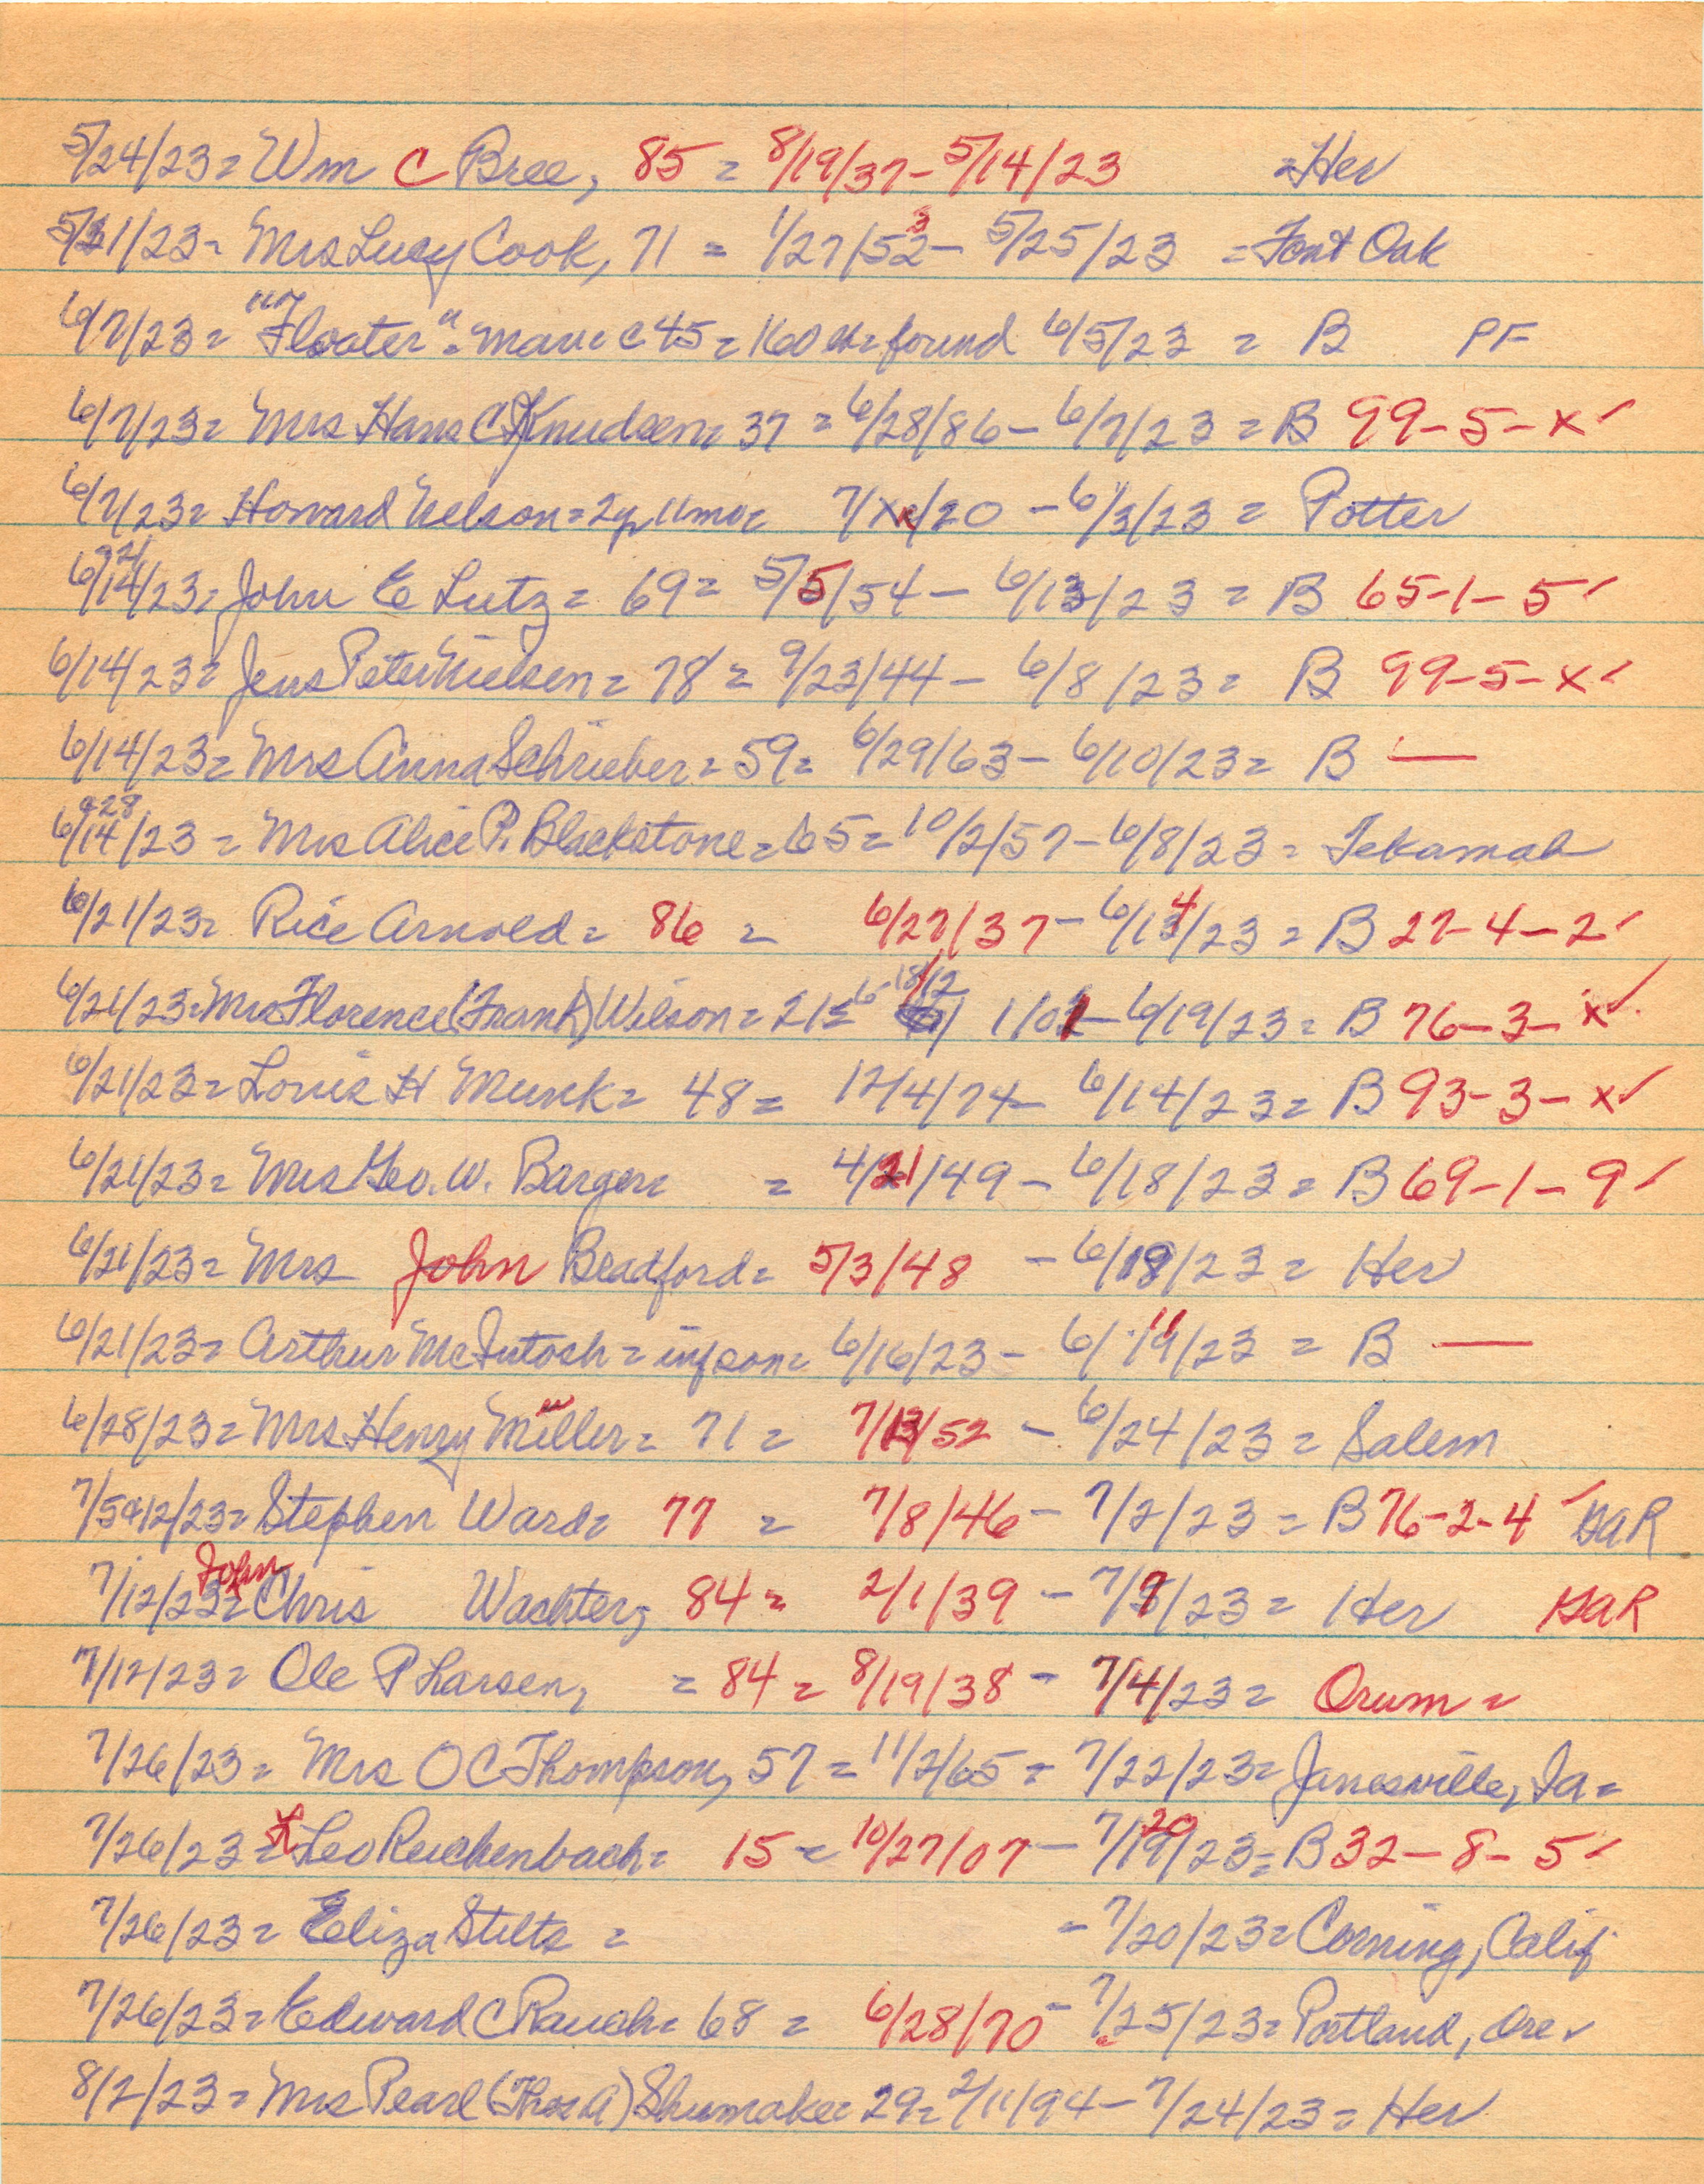 5/24/23= Wm C Bree, 85 = 8/19/37- 5/14/23 =Her
5/31/23= Mrs Lucy Cook, 71 = 1/27/52 3 - 5/25/23 = Font Oak
6/7/23= "Floater"= man= c45= 160#= found 6/5/23 = B PF
6/7/23= Mrs Hans C Knudsen= 37 = 6/28/86 - 6/7/23 = B 99-5-x✓
6/7/23= Howard Nelson= 2y 11mo= 7/xx/20 - 6/3/23 = Potter
6/14/23= John E Lutz = 69= 5/5/54 - 6/13/23 = B 65-1-5✓
6/14/23= Jens Peter Nielsen= 78 = 9/23/44 - 6/8/23 = B 99-5-x✓
6/14/23= Mrs Anna Schrieber= 59= 6/29/63 - 6/10/23= B —
6/14 &28/23 = Mrs Alice P. Blackstone= 65= 10/2/57 - 6/8/23 = Tekamah
6/21/23= Rice Arnold= 86 = 6/27/37 - 6/14/23 = B 27-4-2✓
6/21/23= Mrs Florence (Frank) Wilson= 21= 1/01 - 6/19/23= B 76-3-x✓
6/21/23= Louis H Munk= 48= 12/4/74 - 6/14/23= B 93-3-x✓
6/21/23= Mrs Geo. W. Barger= = 4/21/49 - 6/18/23 = B 69-1-9✓
6/21/23= Mrs John Bradford= 5/3/48 - 6/18/23 = Her
6/21/23= Arthur McIntosh= inf son= 6/16/23 - 6/19/23 = B —
6/28/23= Mrs Henry Miller= 71 = 7/13/52 - 6/24/23 = Salem
7/5&12/23= Stephen Ward= 77 = 7/8/46 - 7/2/23 = B 76-2-4✓ GAR
7/12/23= John Chris Wachter, 84= 2/1/39 - 7/9/23 = Her GAR
7/12/23= Ole P Larsen, = 84 = 8/19/38 - 7/4/23 = Orum =
7/26/23= Mrs O C Thompson, 57 = 11/2/65 = 7/22/23= Janesville, Ia=
7/26/23= Leo Reichenbach= 15 = 10/27/07 - 7/20/23= B 32-8-5✓
7/26/23= Eliza Stilts = - 7/20/23= Corning, Calif
7/26/23= Edward C Rauch= 68 = 6/28/70 - 7/25/23= Portland, Ore
8/2/23= Mrs Pearl (Thos A) Shumaker 29= 2/11/94 - 7/24/23= Her